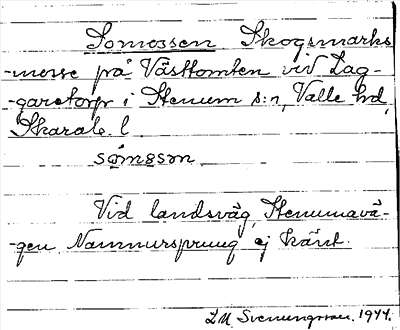 Somossen Skogsmarks
-mosse på Västtomten vid Lag-
-garetorp i Stenum s:n, Valle hd,
Skarab. l.
sωmɷsən
Vid landsväg, Stenumavä-
-gen. Namnursprung ej känt.
L M Svenungsson. 1944.